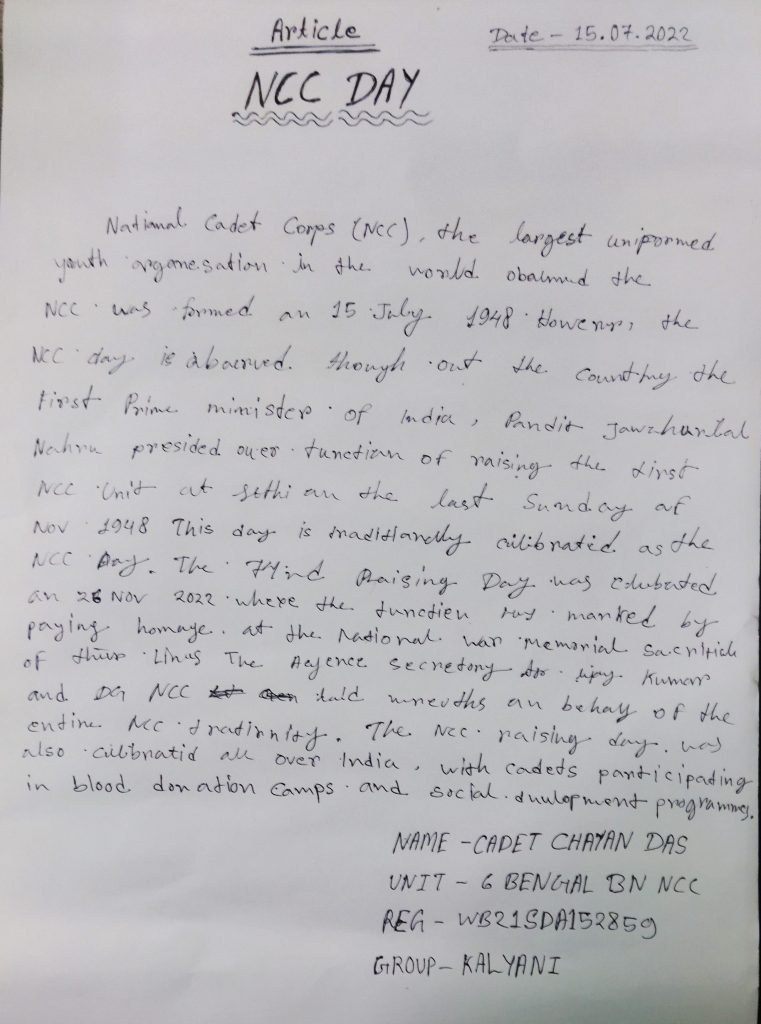 Article
Date - 15.07.2022
NCC DAY
National Cadet Corps (NCC), the largest unipormed
youth organesation in the world obaerved the
NCC was formed an 15 July 1948 However, the
NCC day is abaerved. though out the counttny the
First Prime minister of India, Pandit Jawaharlal
Nahru presided over function of raising the first
NCC Unit at on the last Sunday of
Nov 1948 This day is as the
NCC Day. The Raising Day was
an 26 NOV 2022 where the function was marked by
paying homage at the National war Memorial
of The secretory Kumar
and DG NCC laid an behalf of the
entire NCC The NCC raising day. was
also all over India, with cadets participating
in blood donation camps and social programmes.
NAME - CADET CHAYAN DAS
UNIT - 6 BENGAL BN NCC
REG - WB21SDA152859
GROUP - KALYANI